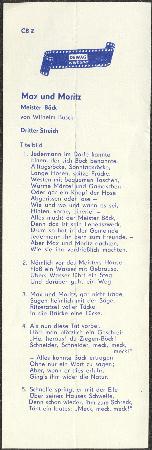 CB 2
DEWAG
Max und Moritz
Meister Böck
von Wilhelm Busch
Dritter Streich
Titelbild
1. Jedermann im Dorfe kannte
Einen, der sich Böck benannte.
Alltagsröcke, Sonntagsröcke,
Lange Hosen, spitze Fräcke,
Westen mit bequemen Taschen,
Warme Mäntel und Gamaschen
Oder gar ein Knopf der Hose
Abgerissen oder lose –
Wie und wo und wann es sei,
Hinten, vorne, einerlei –
Alles macht der Meister Böck,
Denn das ist sein Lebenszweck.
Drum so hat in der Gemeinde
Jedermann ihn gern zum Freunde. –
Aber Max und Moritz dachten,
Wie sie ihn verdrießlich machten.
2. Nämlich vor des Meisters Hause
Floß ein Wasser mit Gebrause.
Übers Wasser führt ein Steg
Und darüber geht ein Weg.
3. Max und Moritz, gar nicht träge,
Sägen heimlich mit der Säge,
Ritzeratze! voller Tücke
In die Brücke eine Lücke.
4. Als nun diese Tat vorbei,
Hört man plötzlich ein Geschrei:
„He, heraus! du Ziegen-Böck!
Schneider, Schneider, meck, meck,
meck!“
– Alles konnte Böck ertragen
Ohne nur ein Wort zu sagen;
Aber, wenn er dies erfuhr,
Ging's ihm wider die Natur.
5. Schnelle springt er mit der Elle
Über seines Hauses Schwelle,
Denn schon wieder, ihm zum Schreck,
Tönt ein lautes: „Meck, meck, meck!“